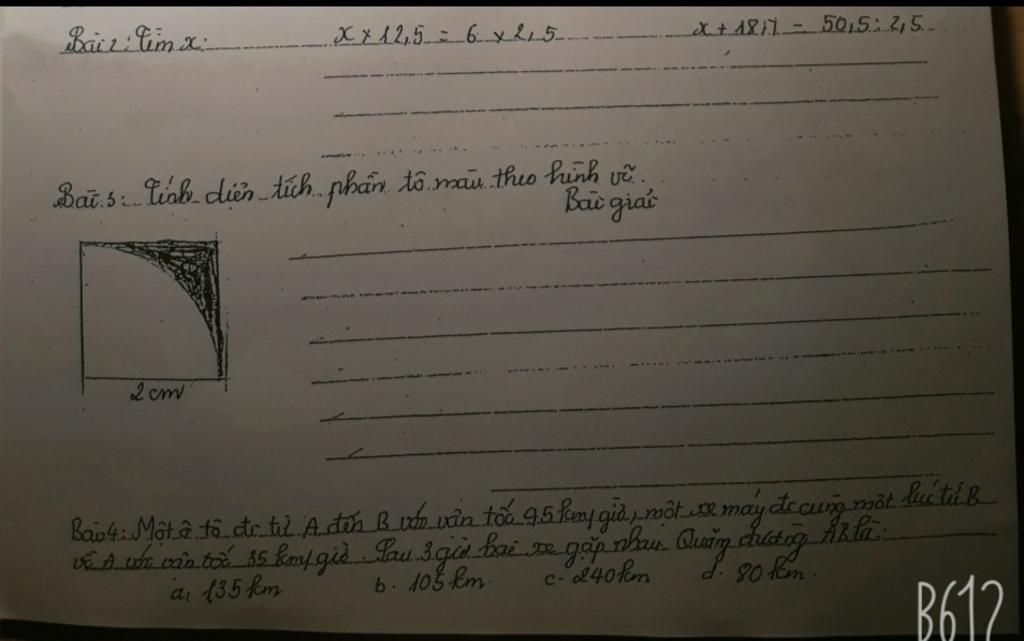 Bài 2: Tìm x: x × 12,5 = 6 × 2,5 x + 18,7 = 50,5 : 2,5
Bài 3: Tính diện tích phần tô màu theo hình vẽ.
Bài giải
2 cm
Bài 4: Một ô tô đi từ A đến B với vận tốc 45 km/giờ, một xe máy đi cùng một lúc từ B
về A với vận tốc 35 km/giờ. Sau 3 giờ hai xe gặp nhau. Quãng đường AB là:
a, 135 km b. 105 km. c. 240 km d. 80 km.
B612